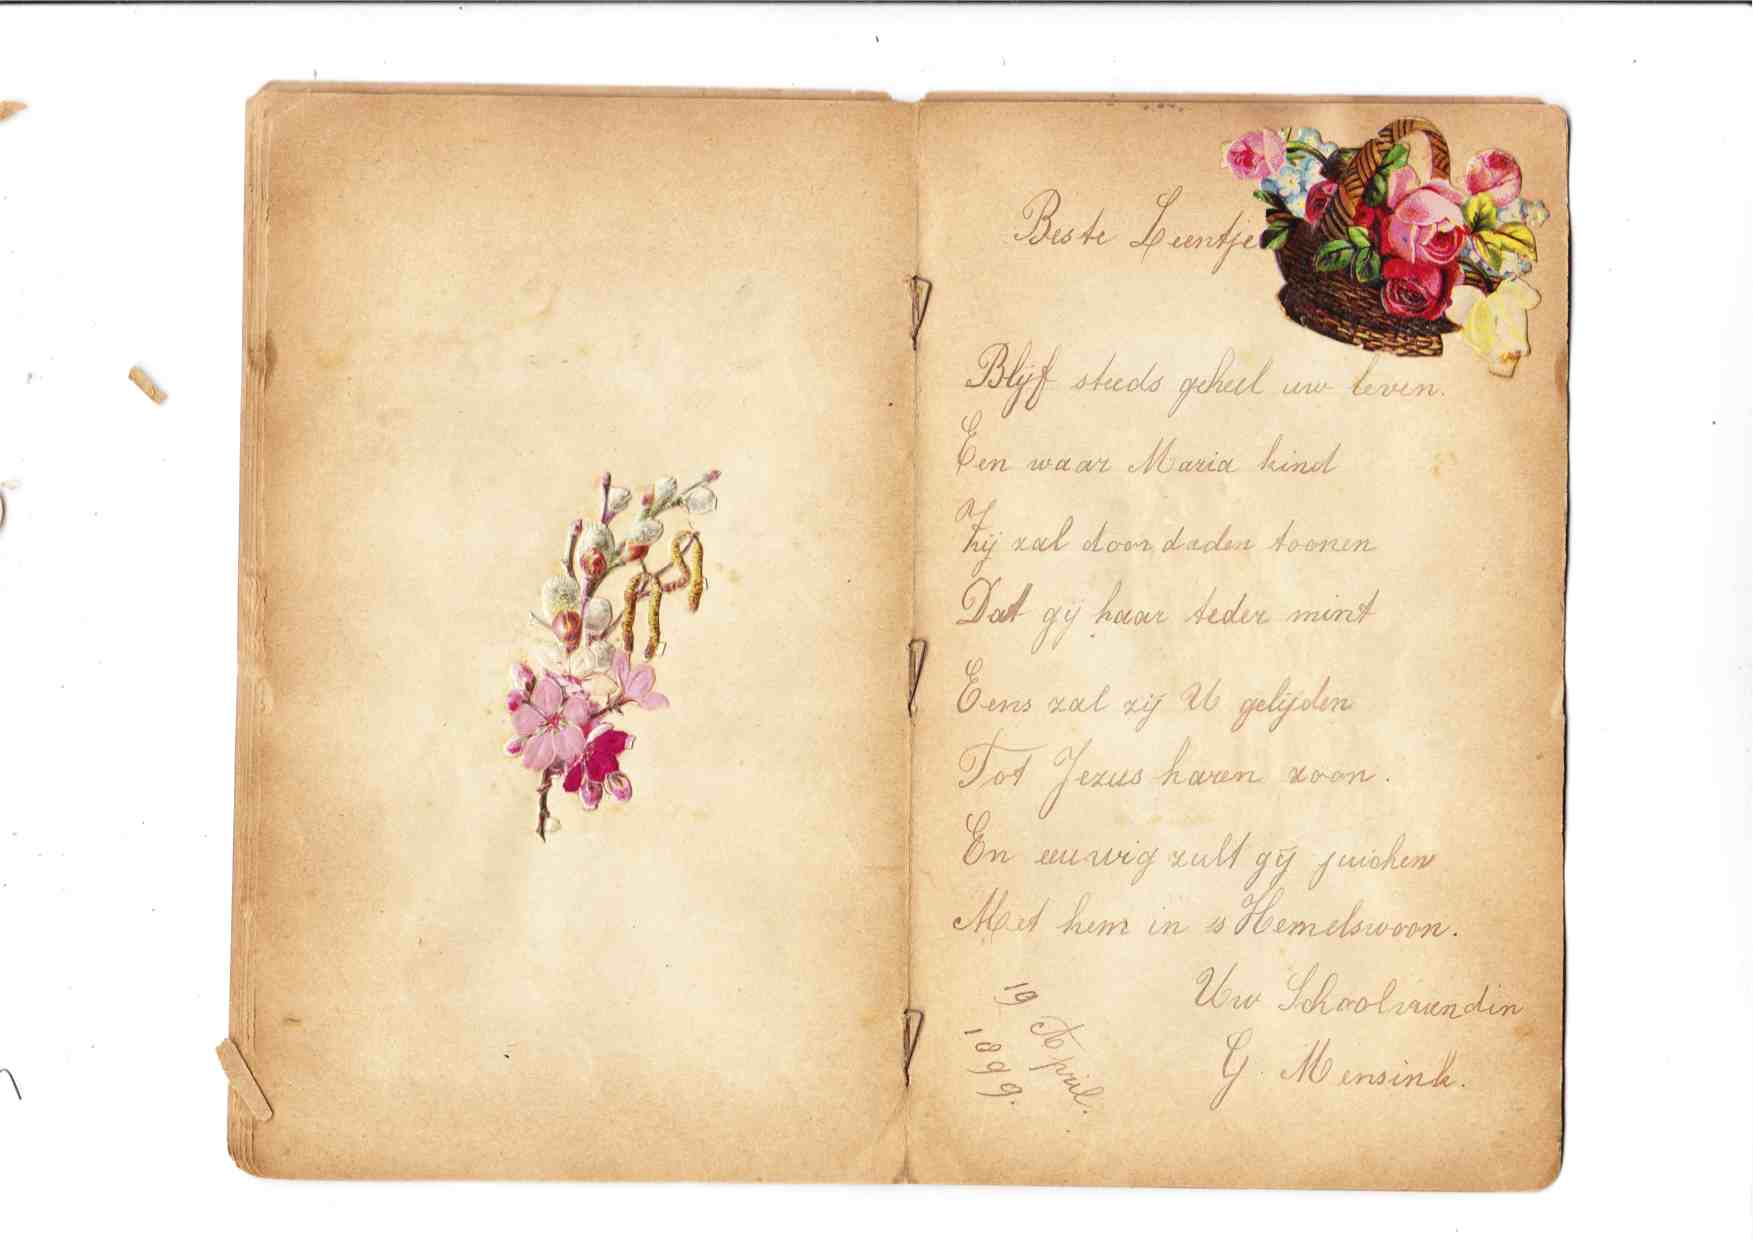 Beste Leentje
Blijf steeds geheel uw leven.
Een waar Maria kind
Zij zal door daden toonen
Dat gij haar teder mint
Eens zal zij U gelijden
Tot Jezus haren zoon.
En eeuwig zult gij juichen
Met hem in s Hemelswoon.
Uw Schoolvrundin
G. Mensink.
19 April.
1899.